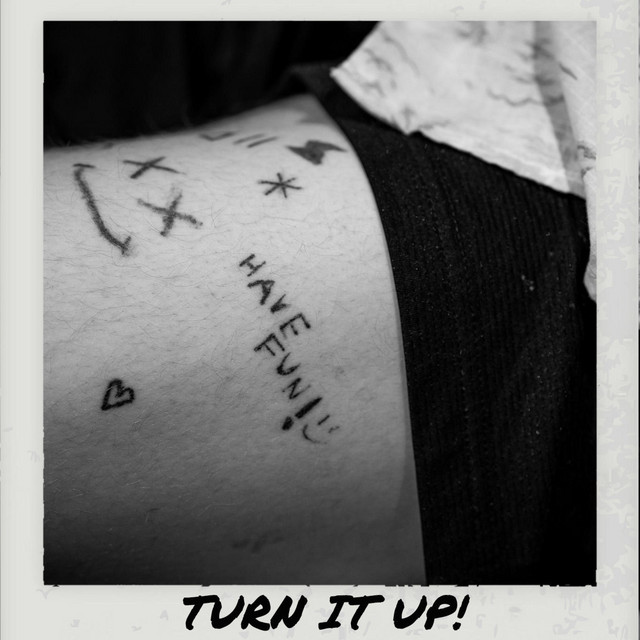 HAVE
FUN!
TURN IT UP!